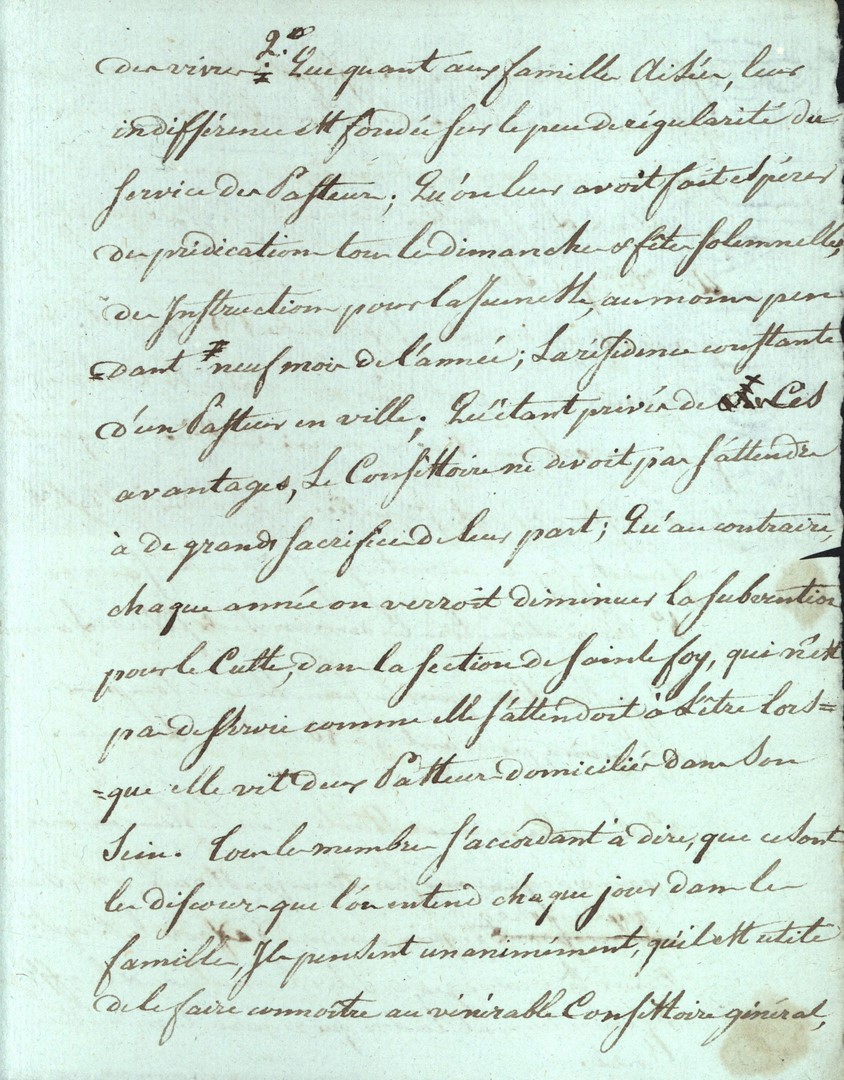 des vivres : 2.° Que quant aux familles aisées, leur
indifférence est fondée sur le peu de régularité du
service des Pasteurs ; Qu'on leur avoit fait espérer
des prédications tous les dimanches & fêtes solemnelles,
des Instructions pour la Jeunesse, au moins pen
=dant neuf mois de l'année ; La résidence constante
d'un Pasteur en ville ; Qu'étant privés de ces
avantages, Le Consistoire ne devoit pas s'attendre
à de grands sacrifices de leur part ; Qu'au contraire,
chaque année on verroit diminuer la subvention
pour le Culte, dans la section de Sainte foy, qui n'est
pas desservie comme elle s'attendoit à L'être lors=
=que elle vit deux Pasteurs domiciliés dans Son
Sein. Tous les membres s'accordant à dire, que ce sont
les discours que l'on entend chaque jour dans les
familles, Ils pensent unanimément, qu'il est utile
de le faire connoître au vénérable Consistoire général,